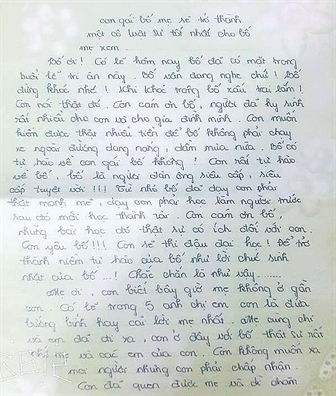 con gái bố mẹ sẽ trở thành
một cô luật sư tốt nhất cho bố
mẹ xem.
Bố ơi! Có lẽ hôm nay bố đã có mặt trong
buổi lễ tri ân này. Bố vẫn đang nghe chứ! Bố
đừng khóc nhé! Khi khóc trông bố xấu trai lắm!
Con nói thật đó. Con cảm ơn bố, người đã hy sinh
rất nhiều cho con và cho gia đình mình. Con muốn
kiếm được thật nhiều tiền để bố không phải chạy
xe ngoài đường dang nắng, dầm mưa nữa. Bố có
tự hào về con gái bố không! Con rất tự hào
về bố, bố là người đàn ông siêu cấp, siêu
cấp tuyệt vời!!! Từ nhỏ bố đã dạy con phải
thật mạnh mẽ, dạy con phải học làm người trước
sau đó mới học thành tài. Con cảm ơn bố,
những bài học đó thật sự có ích đối với con.
Con yêu bố!!! Con sẽ thi đậu đại học! Để trở
thành niềm tự hào của bố như lời chúc sinh
nhật của bố ...! Chắc chắn là như vậy.......
Mẹ ơi, con biết bây giờ mẹ không ở gần
con. Có lẽ trong 5 anh chị em con là đứa
bướng bỉnh hay cãi lời mẹ nhất. Mẹ cùng chị
và em đã đi xa, con ở đây với bố thật sự rất
nhớ mẹ và các em của con. Con không muốn xa
mọi người nhưng con phải chấp nhận.
Con đã quen được mẹ và dì chăm